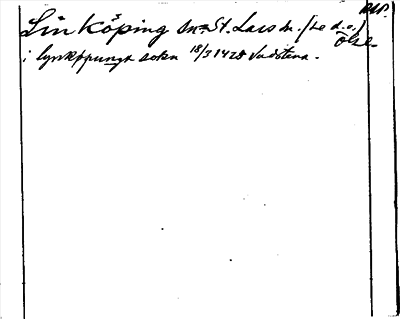 Linköping St. Lars sn. (se d.o.)
i lynkøpungx sokn 18/3 1428 Vadstena.